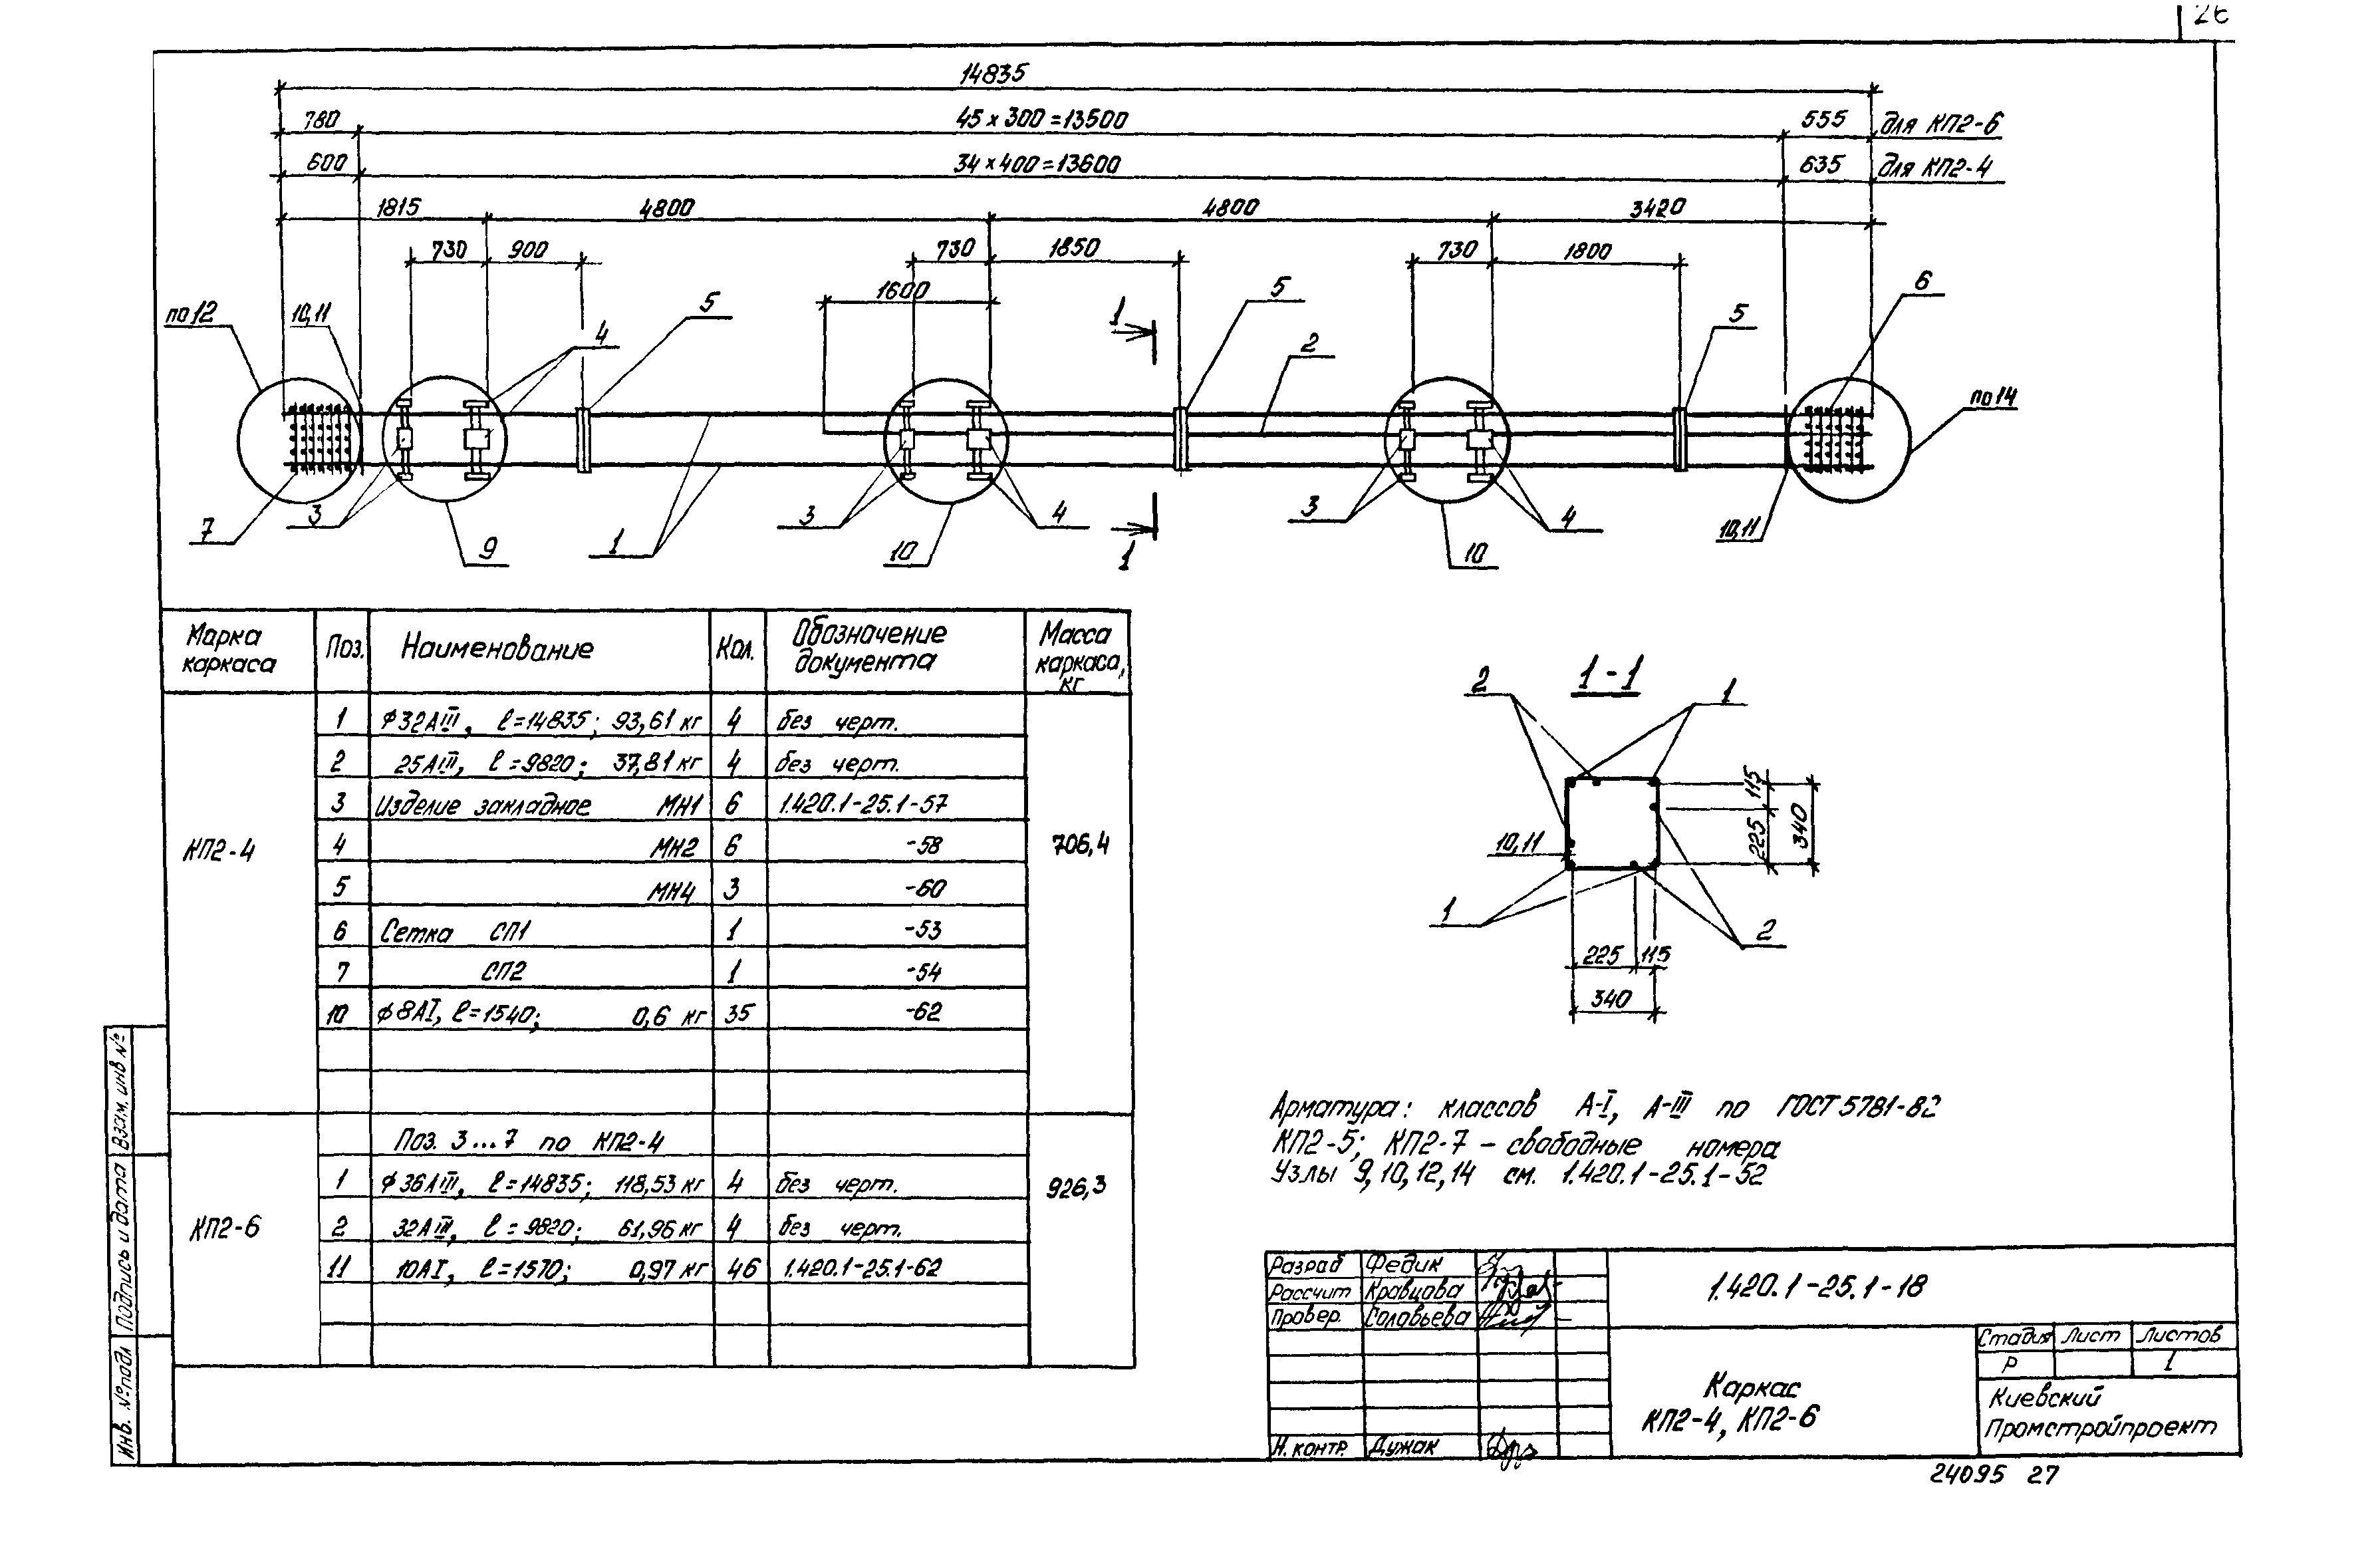 26
14835
780 45 x 300 = 13500 555 для КП2-6
600 34 x 400 = 13600 635 для КП2-4
1815 4800 4800 3420
730 900 730 1850 730 1800
1600
по 12 10,11 4 5 1 5 2 5 6
по 14
7 3 9 1 3 10 4 1 3 10 4 10,11
Марка каркаса Поз. Наименование Кол. Обозначение документа Масса каркаса, кг
КП2-4 706,4
1 ϕ32АIII, ℓ=14835; 93,61 кг 4 без черт.
2 25АIII, ℓ=9820; 37,81 кг 4 без черт.
3 Изделие закладное МН1 6 1.420.1-25.1-57
4 МН2 6 -58
5 МН4 3 -60
6 Сетка СП1 1 -53
7 СП2 1 -54
10 ϕ8АI, ℓ=1540; 0,6 кг 35 -62
КП2-6 926,3
Поз. 3...7 по КП2-4
1 ϕ36АIII, ℓ=14835; 118,53 кг 4 без черт.
2 32АIII, ℓ=9820; 61,96 кг 4 без черт.
11 10АI, ℓ=1570; 0,97 кг 46 1.420.1-25.1-62
1-1
2 1
115
225
340
10,11
1 2
225 115
340
Арматура: классов А-I, А-III по ГОСТ 5781-82
КП2-5; КП2-7 - свободные номера
Узлы 9,10,12,14 см. 1.420.1-25.1-52
Разраб Федик
Рассчит Кравцова
Провер. Соловьева
Н. контр. Дужак
1.420.1-25.1-18
Каркас
КП2-4, КП2-6
Стадия Лист Листов
Р 1
Киевский
Промстройпроект
24095 27
Взам. инв №
Подпись и дата
Инв. № подл